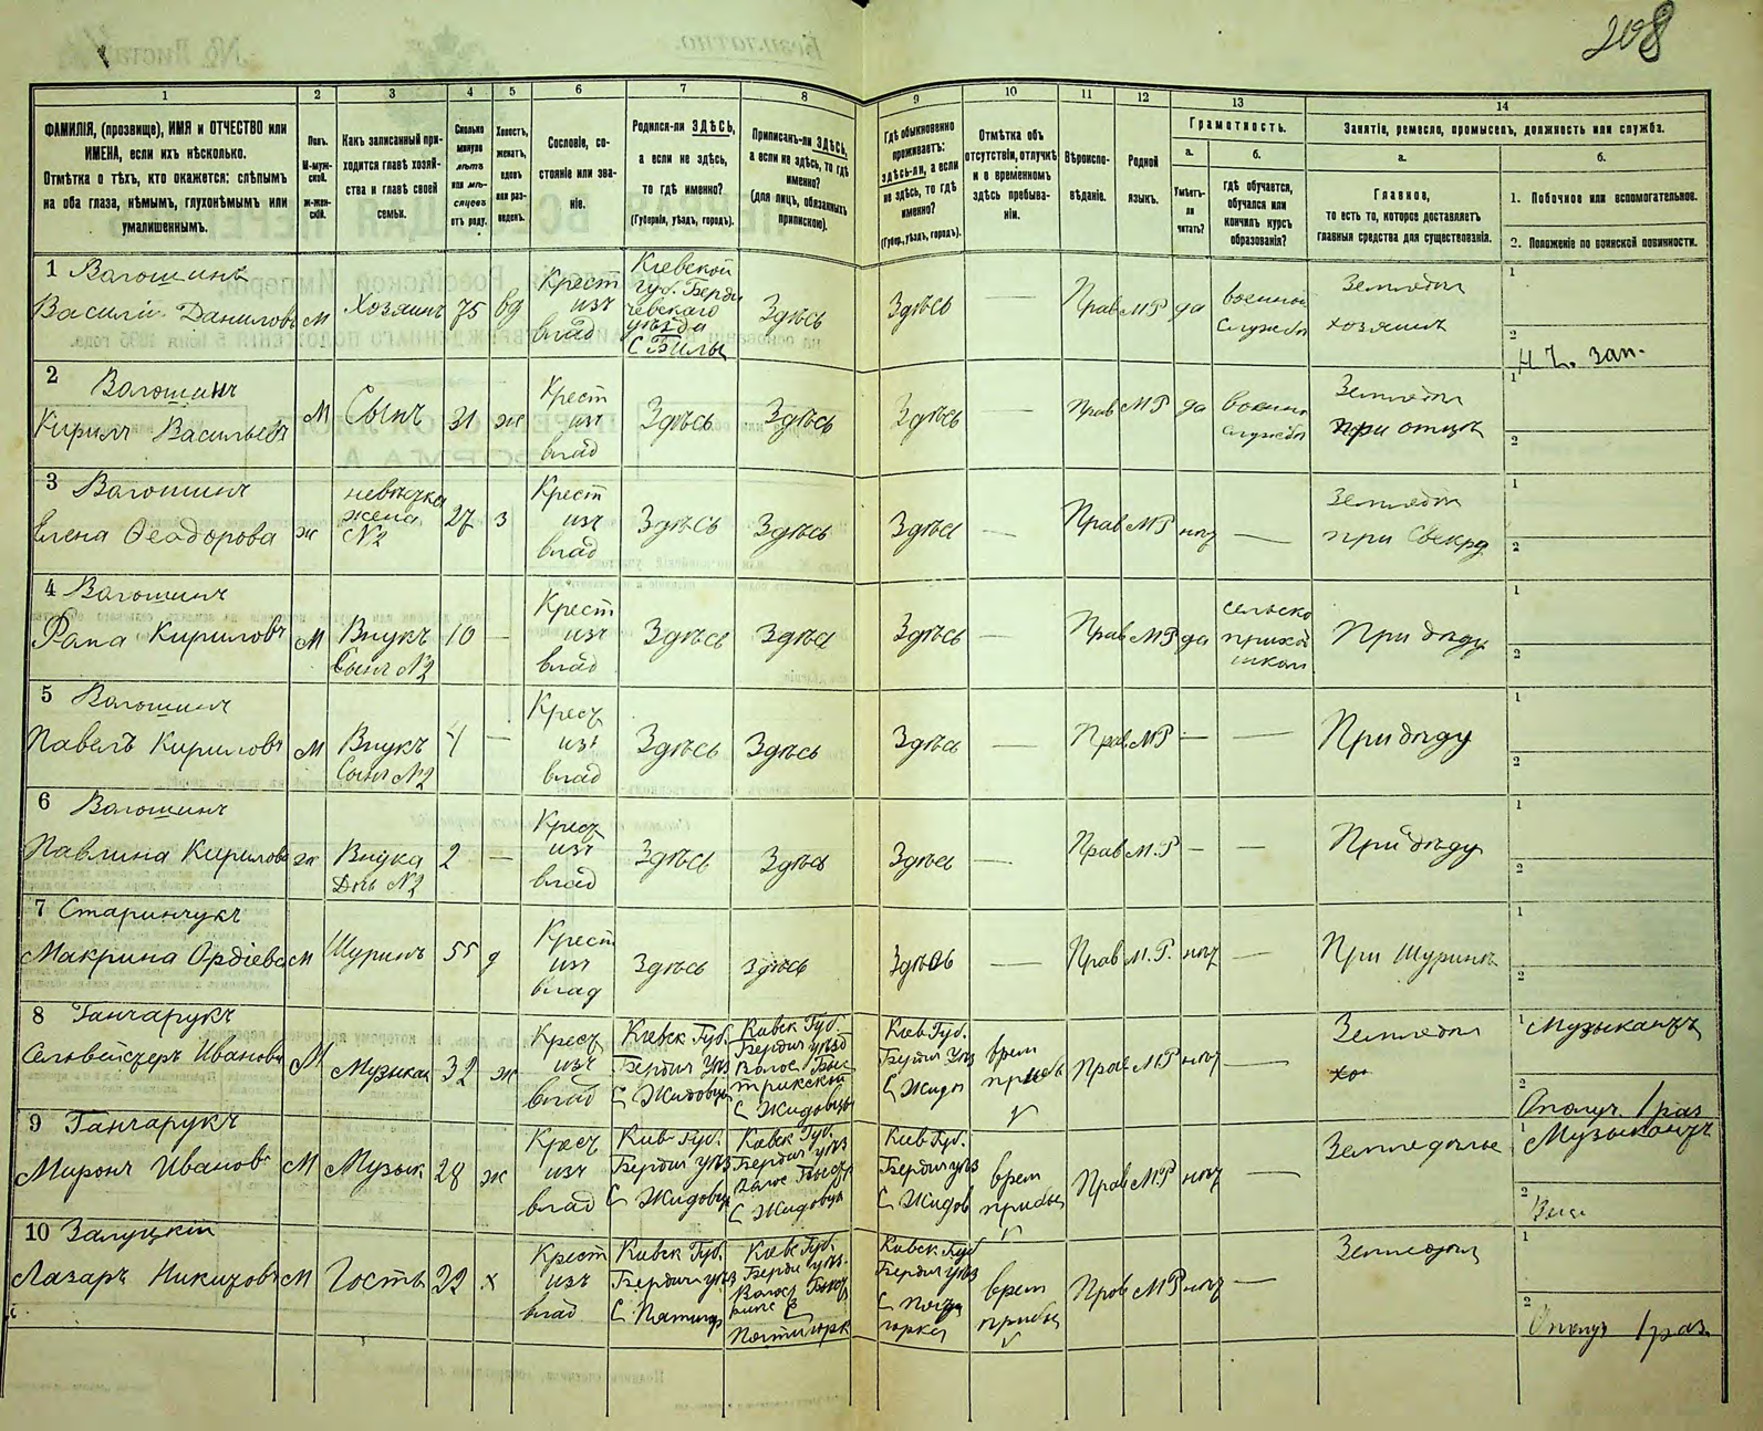 208
1 2 3 4 5 6 7 8 9 10 11 12 13 14
ФАМИЛІЯ, (прозвище), ИМЯ и ОТЧЕСТВО или
ИМЕНА, если ихъ нѣсколько.
Отмѣтка о тѣхъ, кто окажется: слѣпымъ
на оба глаза, нѣмымъ, глухонѣмымъ или
умалишеннымъ.
Полъ.
М-муж-
ской.
ж-жен-
скій.
Какъ записанный при-
ходится главѣ хозяй-
ства и главѣ своей
семьи.
Сколько
минуло
лѣтъ
или мѣ-
сяцевъ
отъ роду.
Холостъ,
женатъ,
вдовъ
или раз-
веденъ.
Сословіе, со-
стояніе или зва-
ніе.
Родился-ли ЗДѢСЬ,
а если не здѣсь,
то гдѣ именно?
(Губернія, уѣздъ, городъ).
Приписанъ-ли ЗДѢСЬ,
а если не здѣсь, то гдѣ
именно?
(для лицъ, обязанныхъ
припискою).
Гдѣ обыкновенно
проживаетъ:
здѣсь-ли, а если
не здѣсь, то гдѣ
именно?
(Губер., уѣздъ, городъ).
Отмѣтка объ
отсутствіи, отлучкѣ
и о временномъ
здѣсь пребыва-
ніи.
Вѣроиспо-
вѣданіе.
Родной
языкъ.
Грамотность.
а.
Умѣетъ-
ли
читать?
б.
гдѣ обучается,
обучался или
кончилъ курсъ
образованія?
Занятіе, ремесло, промыселъ, должность или служба.
а.
Главное,
то есть то, которое доставляетъ
главныя средства для существованія.
б.
1. Побочное или вспомогательное.
2. Положеніе по воинской повинности.
1 Вагошинъ
Василій Даниловъ м Хозяинъ 75 вд Крест изъ влад Кіевской губ. Берди чевскаго уѣзда С Бѣлы Здѣсь Здѣсь — Прав МР да военной службы Земледѣл хозяинъ
1
2 Н Ч. зап.
2 Вагошинъ
Кирилъ Васильевъ М Сынъ 31 ж Крест изъ влад Здѣсь Здѣсь Здѣсь — Прав МР да военно службы Земледѣл при отцѣ
1
2
3 Вагошинъ
Елена Ѳеодорова ж невѣстка жена №2 27 з Крест изъ влад Здѣсь Здѣсь Здѣсь — Прав МР нѣт — Земледѣл при Свекрѣ
1
2
4 Вагошинъ
Кириловъ М Внукъ Сынъ №2 10 — Крест изъ влад Здѣсь Здѣсь Здѣсь — Прав МР да сельско приход школ При дѣду
1
2
5 Вагошинъ
Павелъ Кириловъ М Внукъ Сынъ №2 4 — Крест изъ влад Здѣсь Здѣсь Здѣсь — Прав МР — — При дѣду
1
2
6 Вагошинъ
Павлина Кирилова ж Внука Дочь №2 2 — Крест изъ влад Здѣсь Здѣсь Здѣсь — Прав М.Р — — При дѣду
1
2
7 Старинчукъ
Макрина м Шуринъ 55 д Крест изъ влад Здѣсь Здѣсь Здѣсь — Прав М.Р. нѣт — При Шуринѣ
1
2
8 Ганчарукъ
Селвейстеръ Иванови М Музыкан 32 ж Крест изъ влад Кіевск Губ. Бердич Уѣз С Жидовц Кивск Губ. Бердич уѣзд Волос Быс трикский С Жидовцы Кіев Губ. Бердич Уѣз С Жидо врем приб Прав МР нѣт — Земледѣл
1 Музыкантъ
2 Ополч 1 раз
9 Ганчарукъ
Миронъ Иванов М Музык 28 ж Крест изъ влад Кив Губ. Бердич уѣз С Жидовц Киевск Губ. Бердич уѣз С Жидовцы Киев Губ. Бердич уѣз С Жидов врем прибы Прав МР нѣт — Земледѣлье
1 Музыкантъ
2
10 Залуцкій
Лазаръ Никитовъ М Гость 22 х Крест изъ влад Кивск Губ. Бердич уѣз С Пятиго Киев Губ. Берди уѣз. Волос Пятигорк Кивск Губ Бердич уѣз С врем прибы Прав МР нѣт — Земледѣл
1
2 Ополч 1 раз.